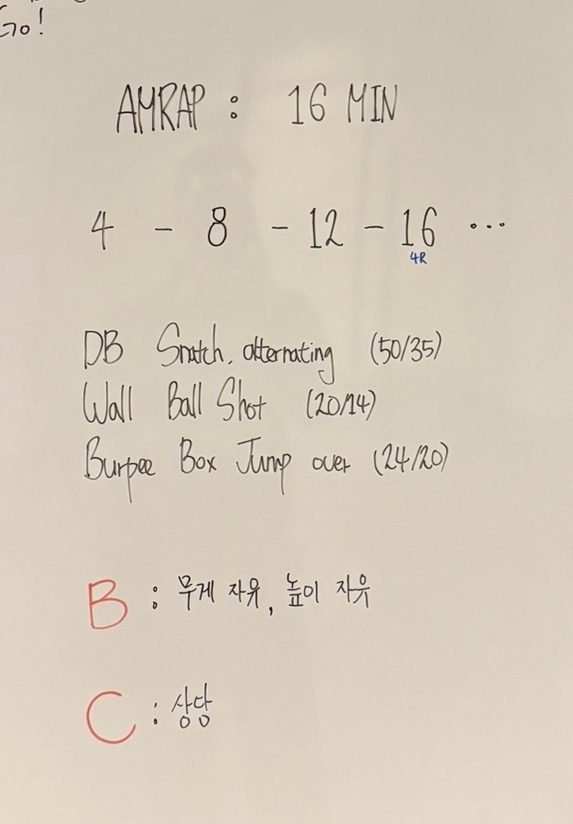 Go!
AMRAP : 16 MIN
4 - 8 - 12 - 16 ...
4R
DB Snatch, alternating (50/35)
Wall Ball Shot (20/14)
Burpee Box Jump over (24/20)
B : 무게 자유, 높이 자유
C : 상담